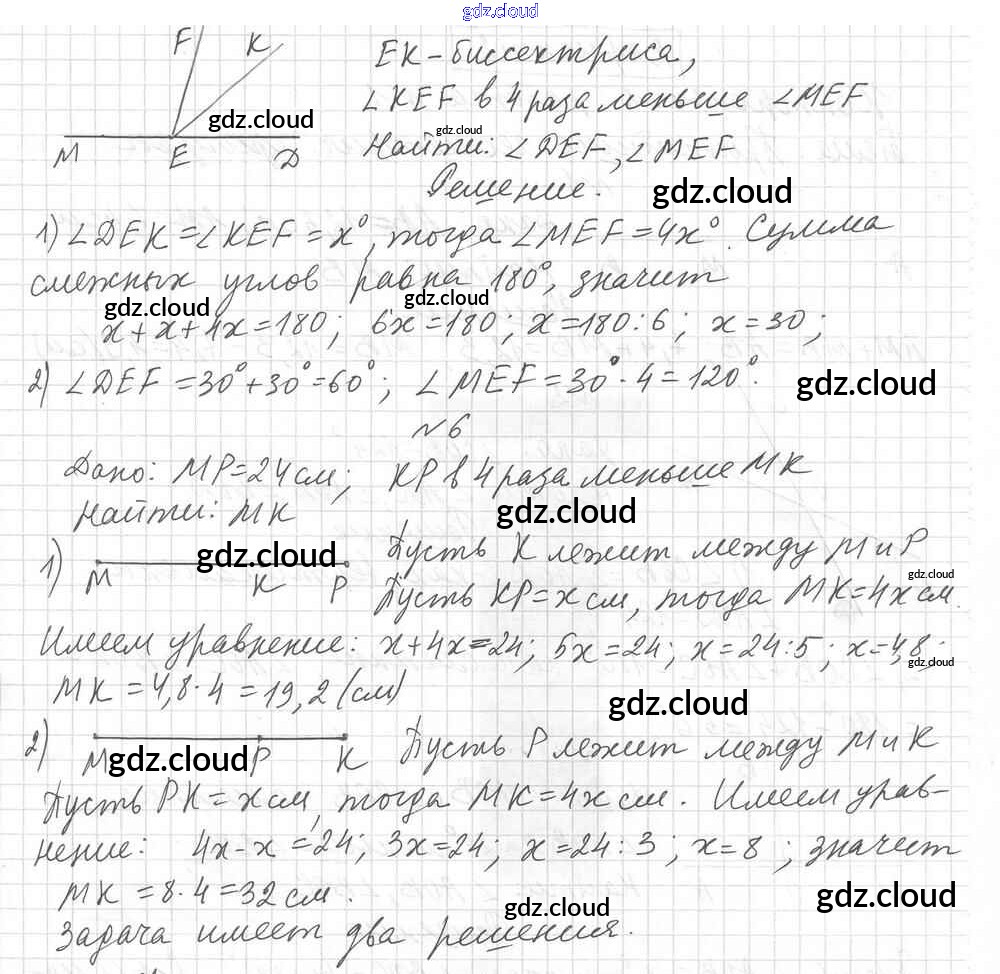 gdz.cloud
F K EK-биссектриса,
∠KEF в 4 раза меньше ∠MEF
gdz.cloud
gdz.cloud
M E D Найти: ∠DEF, ∠MEF
Решение.
gdz.cloud
1) ∠DEK=∠KEF=x°, тогда ∠MEF=4x°. Сумма
смежных углов равна 180°, значит
gdz.cloud gdz.cloud
x+x+4x=180; 6x=180; x=180:6; x=30;
2) ∠DEF=30°+30°=60°; ∠MEF=30°·4=120°.
gdz.cloud
№6
Дано: MP=24см; KP в 4 раза меньше MK
Найти: MK
gdz.cloud
1) M K P Пусть K лежит между M и P
gdz.cloud
gdz.cloud
Пусть KP=x см, тогда MK=4x см.
Имеем уравнение: x+4x=24; 5x=24; x=24:5; x=4,8;
gdz.cloud
MK=4,8·4=19,2(см)
gdz.cloud
2) M P K Пусть P лежит между M и K
gdz.cloud
Пусть PK=x см, тогда MK=4x см. Имеем урав-
нение: 4x-x=24; 3x=24; x=24:3; x=8; значит
MK=8·4=32 см.
gdz.cloud
gdz.cloud
Задача имеет два решения.